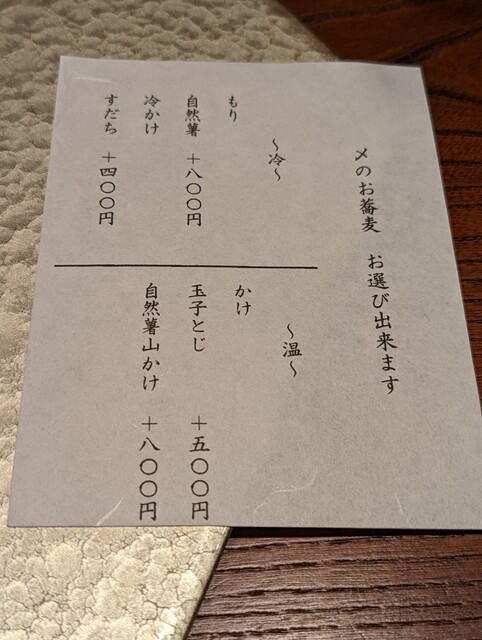 〆のお蕎麦 お選び出来ます
～冷～
もり
自然薯 +八〇〇円
冷かけ
すだち +四〇〇円
～温～
かけ
玉子とじ +五〇〇円
自然薯山かけ +八〇〇円